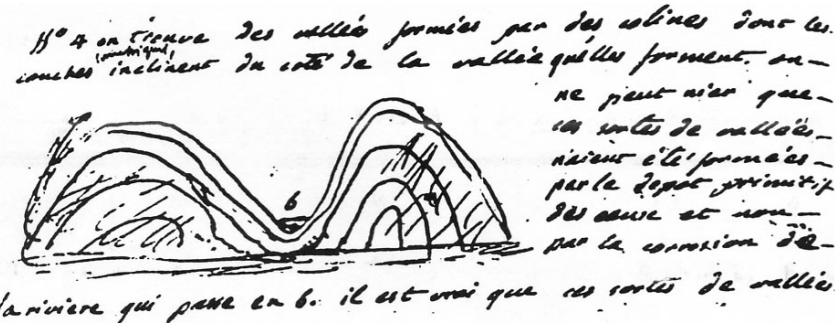 № 4 on trouve des vallées formées par des colines dont les
couches inclinent du coté de la vallée quelles forment. on
ne peut nier que
ces sortes de vallées
n'aient été formées
par le depot primitif
des eaux et non
par la corrosion de
b
la riviere qui passe en b. il est vrai que ces sortes de vallées